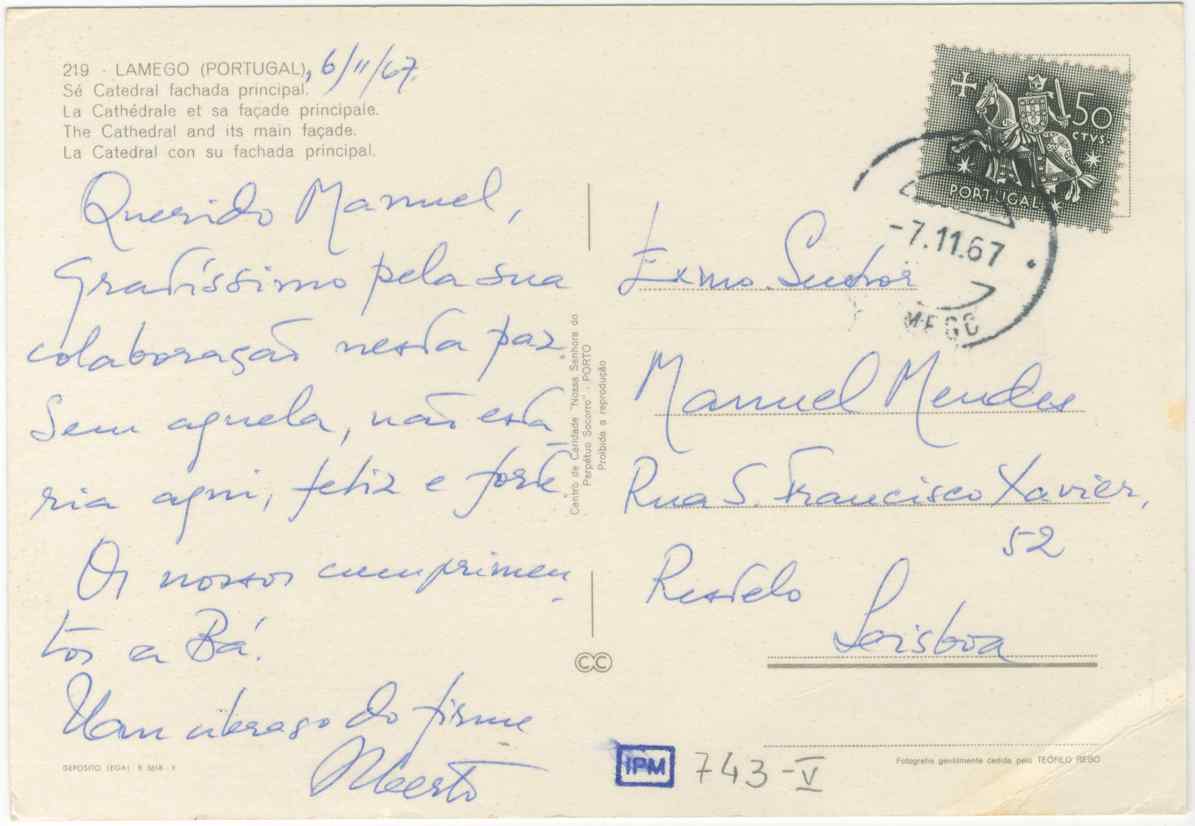 219 - LAMEGO (PORTUGAL), 6/11/67.
Sé Catedral fachada principal.
La Cathédrale et sa façade principale.
The Cathedral and its main façade.
La Catedral con su fachada principal.
Querido Manuel,
Gratíssimo pela sua
colaboração nesta paz.
Sem aquela, não esta
ria aqui, feliz e forte.
Os nossos cumprimen
tos a Bá.
Um abraço do firme
Alberto
DEPOSITO (EGA)
Centro de Caridade "Nossa Senhora do
Perpétuo Socorro" - PORTO
Proibida a reprodução
CC
50
CTVS.
PORTUGAL
-7.11.67
MEGO
Exmo. Senhor
Manuel Mendes
Rua S. Francisco Xavier,
52
Restelo
Lisboa
IPM 743-V
Fotografia gentilmente cedida pelo TEÓFILO REGO